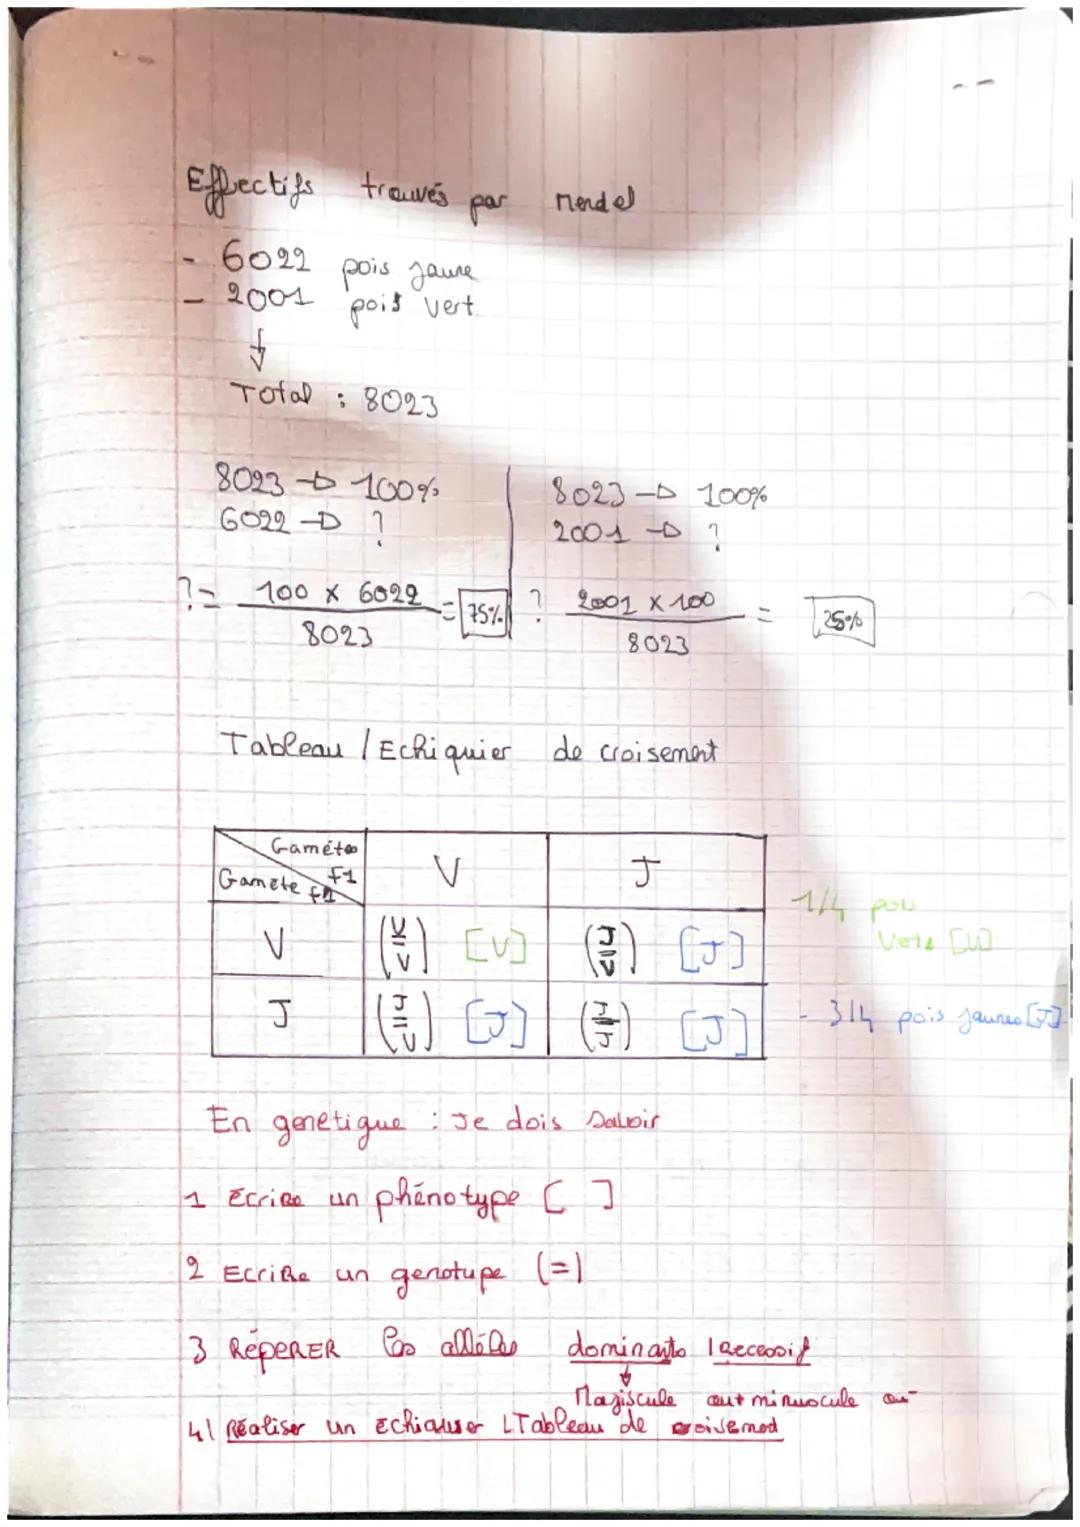 Effectifs trouvés par Mendel
- 6022 pois jaune
- 2001 pois vert
↓
Total : 8023
8023 → 100%
6022 → ?
?= 100 x 6022 / 8023 = 75%
8023 → 100%
2001 → ?
? 2001 x 100 / 8023 = 25%
Tableau / Echiquier de croisement
Gamétes f1
Gamete f1
V J
V (V/V) [V] (J/V) [J]
J (J/V) [J] (J/J) [J]
1/4 pois
[V]
- 3/4 pois jaunes [J]
En genetique : Je dois savoir
1 Ecrire un phénotype [ ]
2 Ecrire un genotupe (=)
3 RéperER les allèles dominants / recessif
↓
Majiscule minuscule
4/ Réaliser un / Tableau de